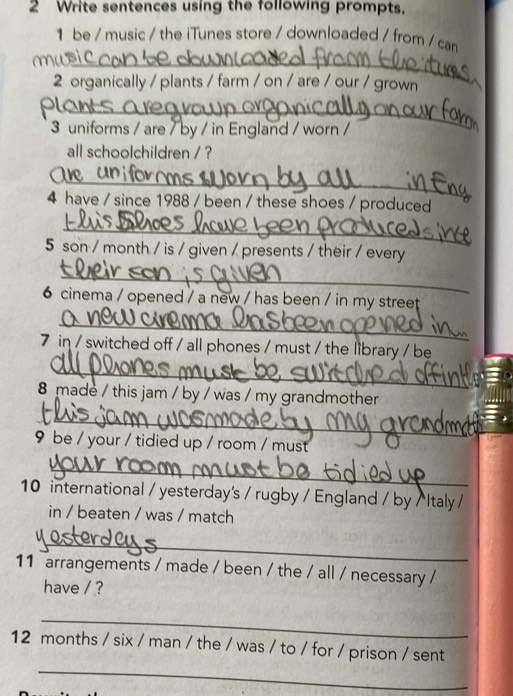 2 Write sentences using the following prompts.
1 be / music / the iTunes store / downloaded / from / can
music can be downloaded from the itunes
2 organically / plants / farm / on / are / our / grown
plants are grown organically on our farm
3 uniforms / are / by / in England / worn /
all schoolchildren / ?
are uniforms worn by all in Eng
4 have / since 1988 / been / these shoes / produced
this shoes have been produced since
5 son / month / is / given / presents / their / every
their son is given
6 cinema / opened / a new / has been / in my street
a new cinema has been opened in
7 in / switched off / all phones / must / the library / be
all phones must be switched off in the
8 made / this jam / by / was / my grandmother
this jam was made by my grandmoth
9 be / your / tidied up / room / must
your room must be tidied up
10 international / yesterday's / rugby / England / by / Italy /
in / beaten / was / match
yesterdays
11 arrangements / made / been / the / all / necessary /
have / ?
12 months / six / man / the / was / to / for / prison / sent